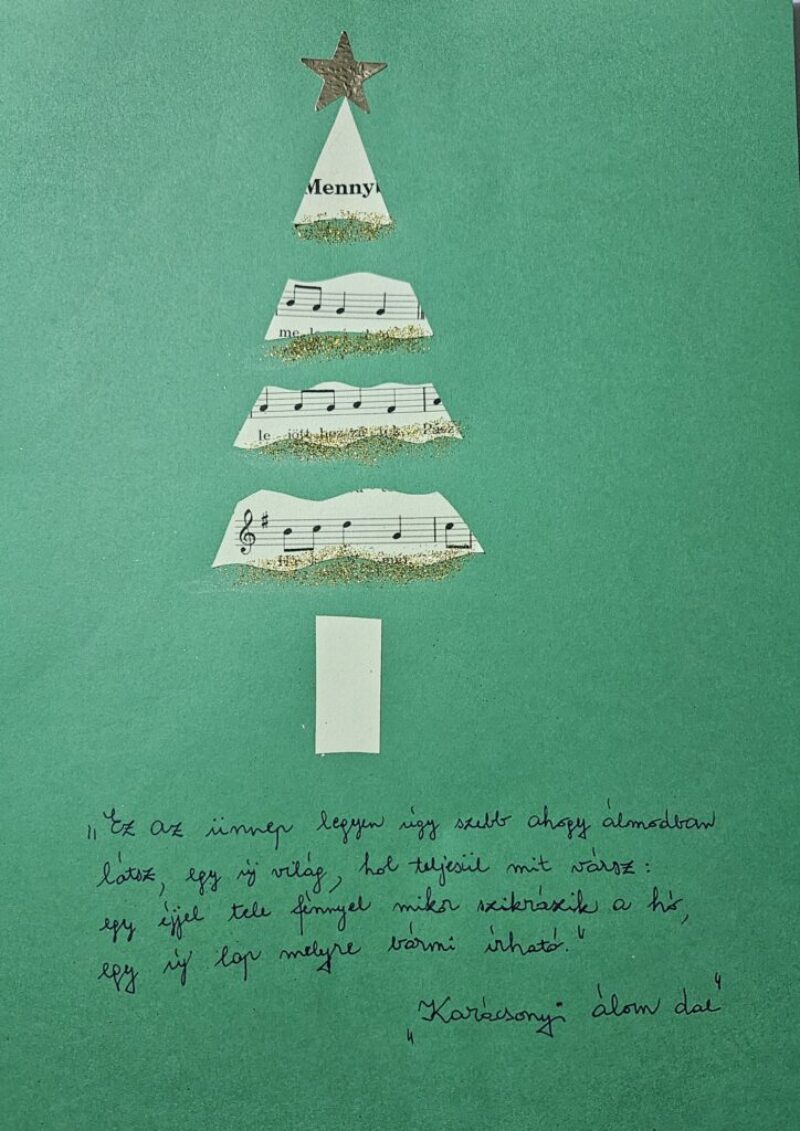 Menny
me
le - jött hoz-zá-tok. Pász
„Ez az ünnep legyen úgy szebb ahogy álmodban
látsz, egy új világ, hol teljesül mit vársz:
egy éjjel tele fénnyel mikor szikrázik a hó,
egy új lap melyre bármi írható."
„Karácsonyi álom dal"